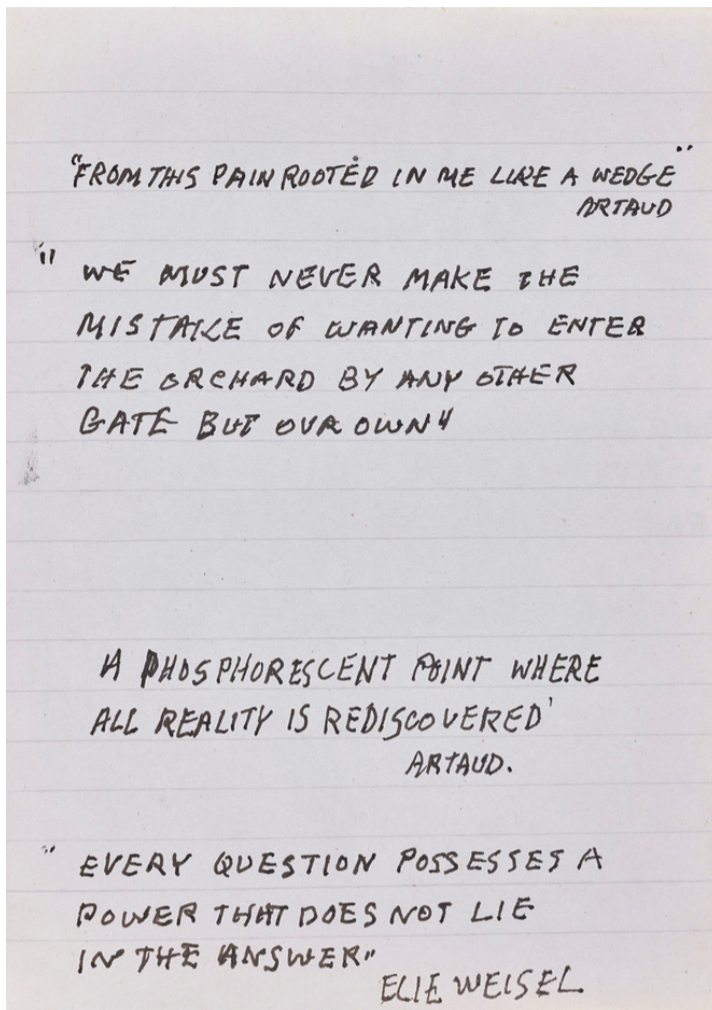 "FROM THIS PAIN ROOTED IN ME LIKE A WEDGE"
ARTAUD
"WE MUST NEVER MAKE THE
MISTAKE OF WANTING TO ENTER
THE ORCHARD BY ANY OTHER
GATE BUT OUR OWN"
A PHOSPHORESCENT POINT WHERE
ALL REALITY IS REDISCOVERED'
ARTAUD.
"EVERY QUESTION POSSESSES A
POWER THAT DOES NOT LIE
IN THE ANSWER"
ELIE WEISEL